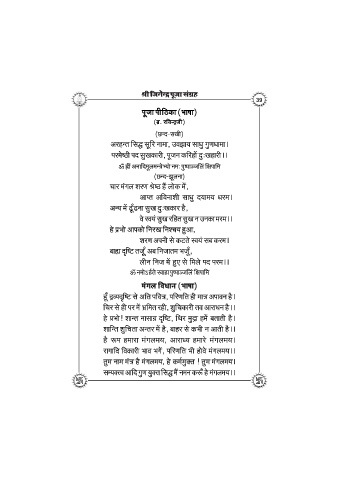 श्री जिनेन्द्र पूजा संग्रह
39
पूजा पीठिका (भाषा)
(ब्र. रविन्द्रजी)
(छन्द-सखी)
अरहन्त सिद्ध सूरि नामा, उवझाय साधु गुणधामा।
परमेष्ठी पद सुखकारी, पूजन करिहों दुःखहारी।।
ॐ ह्रीं अनादिमूलमन्त्रेभ्यो नमः पुष्पाञ्जलिं क्षिपामि
(छन्द-झूलना)
चार मंगल शरण श्रेष्ठ हैं लोक में,
आप्त अविनाशी साधु दयामय धरम।
अन्य में ढूँढना सुख दुःखकार है,
वे स्वयं सुख रहित सुख न उनका मरम।।
हे प्रभो आपको निरख निश्चय हुआ,
शरण अपनी से कटते स्वयं सब करम।
बाह्य दृष्टि तजूँ अब निजातम भजूँ,
लीन निज में हुए से मिले पद परम।।
ॐ नमोऽर्हते स्वाहा पुष्पाञ्जलिं क्षिपामि
मंगल विधान (भाषा)
हूँ द्रव्यदृष्टि से अति पवित्र, परिणति ही मात्र अपावन है।
चिर से ही पर में भ्रमित रही, शुचिकारी तव आराधन है।।
हे प्रभो! शान्त नासाग्र दृष्टि, थिर मुद्रा हमें बताती है।
शान्ति शुचिता अन्तर में है, बाहर से कभी न आती है।।
है रूप हमारा मंगलमय, आराध्य हमारे मंगलमय।
रागादि विकारी भाव भगें, परिणति भी होवे मंगलमय।।
तुम नाम मंत्र है मंगलमय, हे कर्ममुक्त ! तुम मंगलमय।
सम्यक्त्व आदि गुण युक्त सिद्ध मैं नमन करूँ हे मंगलमय।।